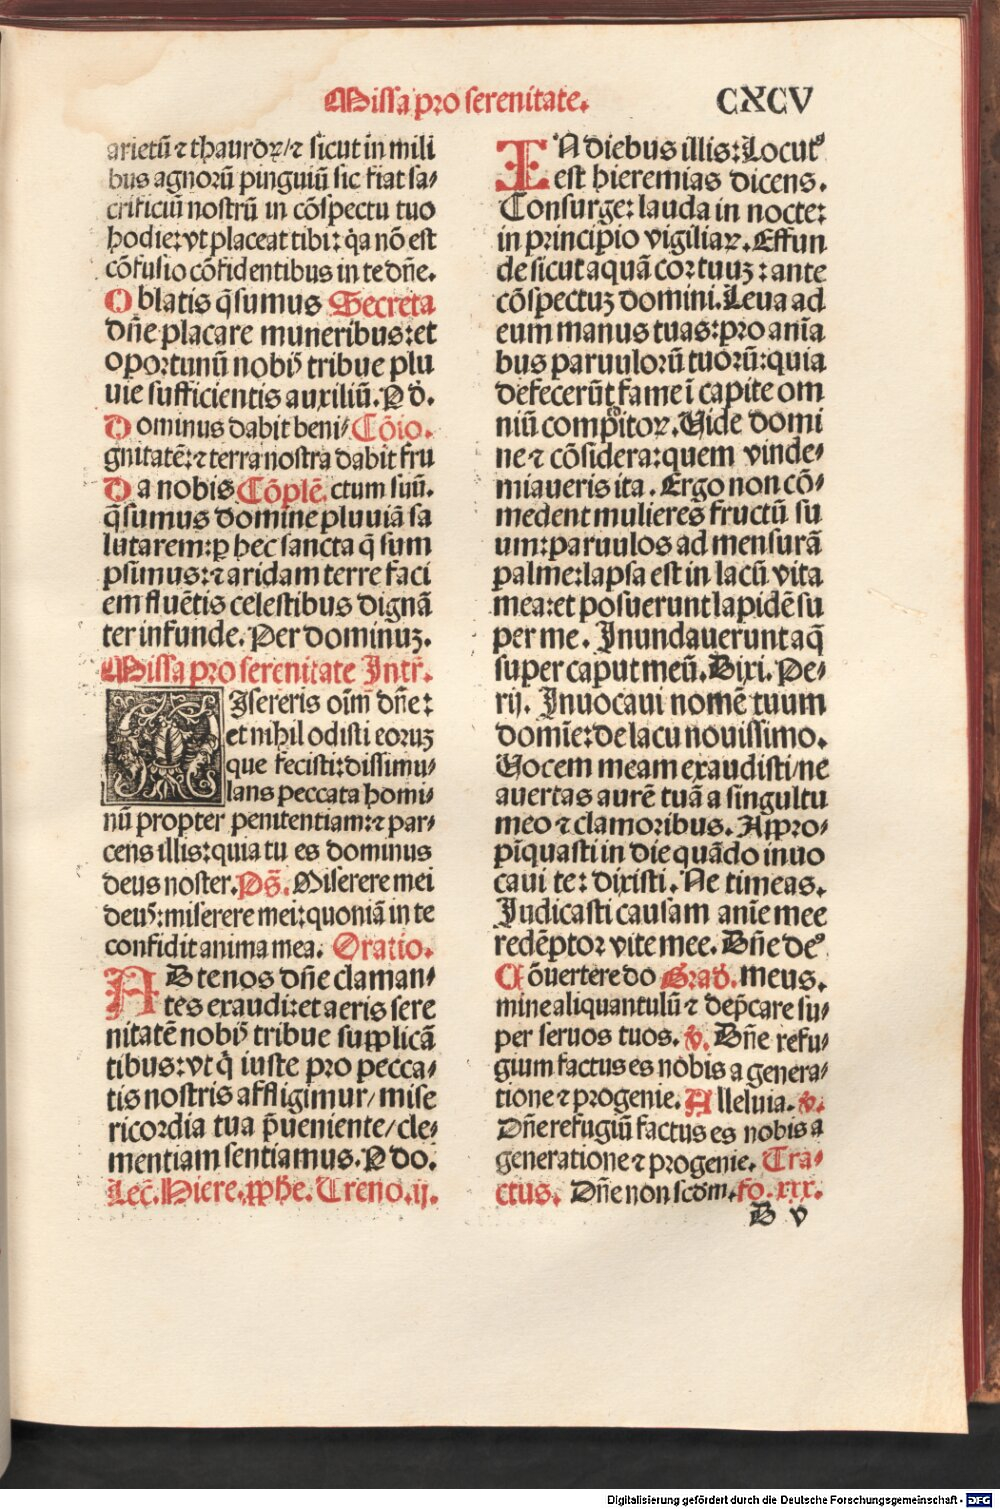 Missa pro serenitate.
CXCV
arietū ⁊ thauroꝝ/⁊ sicut in mili
bus agnorū pinguiū sic fiat sa⸗
crificiū nostrū in cōspectu tuo
hodie: vt placeat tibi: q̄a nō est
cōfusio cōfidentibus in te dn̄e.
Oblatis q̄sumus Secreta
dn̄e placare muneribus: et
oportunū nobꝭ tribue plu
uie sufficientis auxiliū. P do.
Dominus dabit beni⸗ Cōio.
gnitatē: ⁊ terra nostra dabit fru
Da nobis Cōplē. ctum suū.
q̄sumus domine pluuiā sa
lutarem: ꝑ hec sancta q̄ sum
psimus: ⁊ aridam terre faci
em fluētis celestibus dignā
ter infunde. Per dominuꝫ.
Missa pro serenitate Intr̄.
MIsereris oīm dn̄e:
et nihil odisti eoruꝫ
que fecisti: dissimu⸗
lans peccata homi⸗
nū propter penitentiam: ⁊ par⸗
cens illis: quia tu es dominus
deus noster. Ps̄. Miserere mei
deuꝰ: miserere mei: quoniā in te
confidit anima mea. Oratio.
AB te nos dn̄e claman⸗
tes exaudi: et aeris sere
nitatē nobꝭ tribue supplicā
tibus: vt q̄ iuste pro pecca⸗
tis nostris affligimur/ mise
ricordia tua p̄ueniente/ cle⸗
mentiam sentiamus. P do.
Lec̄. Hiere. ꝓphe. Treno. ij.
IN diebus illis: Locutꝰ
est hieremias dicens.
Consurge: lauda in nocte:
in principio vigiliaꝝ. Effun
de sicut aquā cor tuuꝫ: ante
cōspectuꝫ domini. Leua ad
eum manus tuas: pro anīa
bus paruulorū tuorū: quia
defecerūt fame ī capite om
niū compitoꝝ. Uide domi
ne ⁊ cōsidera: quem vinde⸗
miaueris ita. Ergo non cō⸗
medent mulieres fructū su
um: paruulos ad mensurā
palme: lapsa est in lacū vita
mea: et posuerunt lapidē su
per me. Inundauerunt aq̄
super caput meū. Dixi. Pe⸗
rij. Inuocaui nomē tuum
domīe: de lacu nouissimo.
Uocem meam exaudisti/ ne
auertas aurē tuā a singultu
meo ⁊ clamoribus. Appro⸗
pīquasti in die quādo inuo
caui te: dixisti. Ne timeas.
Iudicasti causam anīe mee
redēptor vite mee. Dn̄e deꝰ
Cōuertere do Grad. meus.
mine aliquantulū ⁊ dep̄care su⸗
per seruos tuos. ꝟ. Dn̄e refu⸗
gium factus es nobis a genera⸗
tione ⁊ progenie. Alleluia. ꝟ.
Dn̄e refugiū factus es nobis a
generatione ⁊ progenie. Tra⸗
ctus. Dn̄e non scdm. fo. xxx.
B v
Digitalisierung gefördert durch die Deutsche Forschungsgemeinschaft - DFG